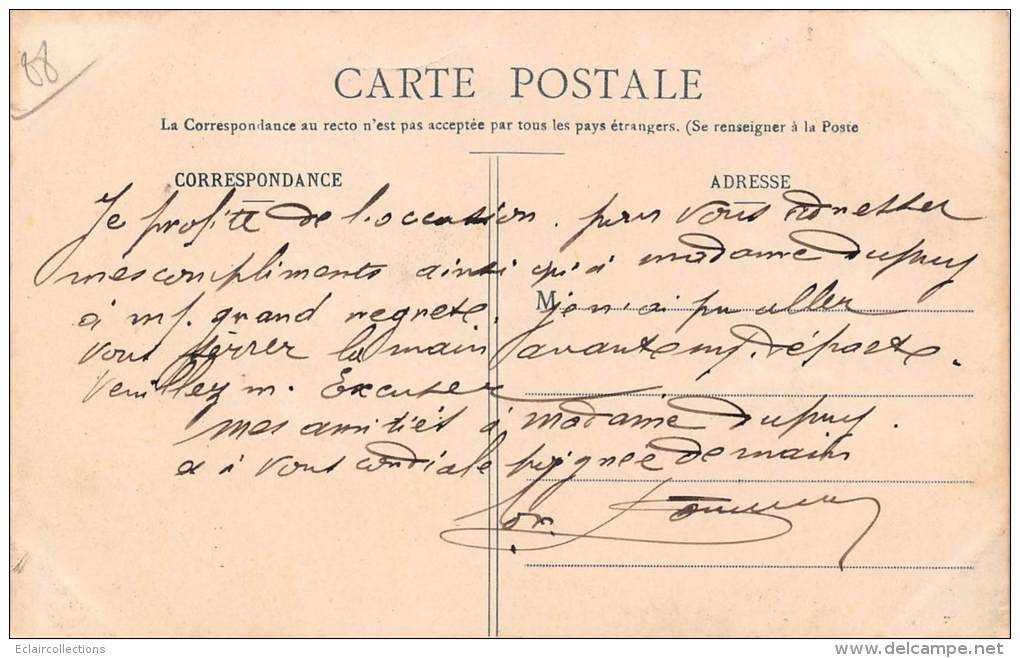 88
CARTE POSTALE
La Correspondance au recto n'est pas acceptée par tous les pays étrangers. (Se renseigner à la Poste
CORRESPONDANCE
ADRESSE
Je profite de l'occasion pour vous adresser
mes compliments ainsi qu'à madame Dupuy
M
à mf. grand regrets. je n'ai pu aller
vous sèrrer la main avant mf. départs.
Veuillez m. Excuser
mes amitiés à madame Dupuy.
et à vous cordiale poignée de main
Eclaircollections
www.delcampe.net